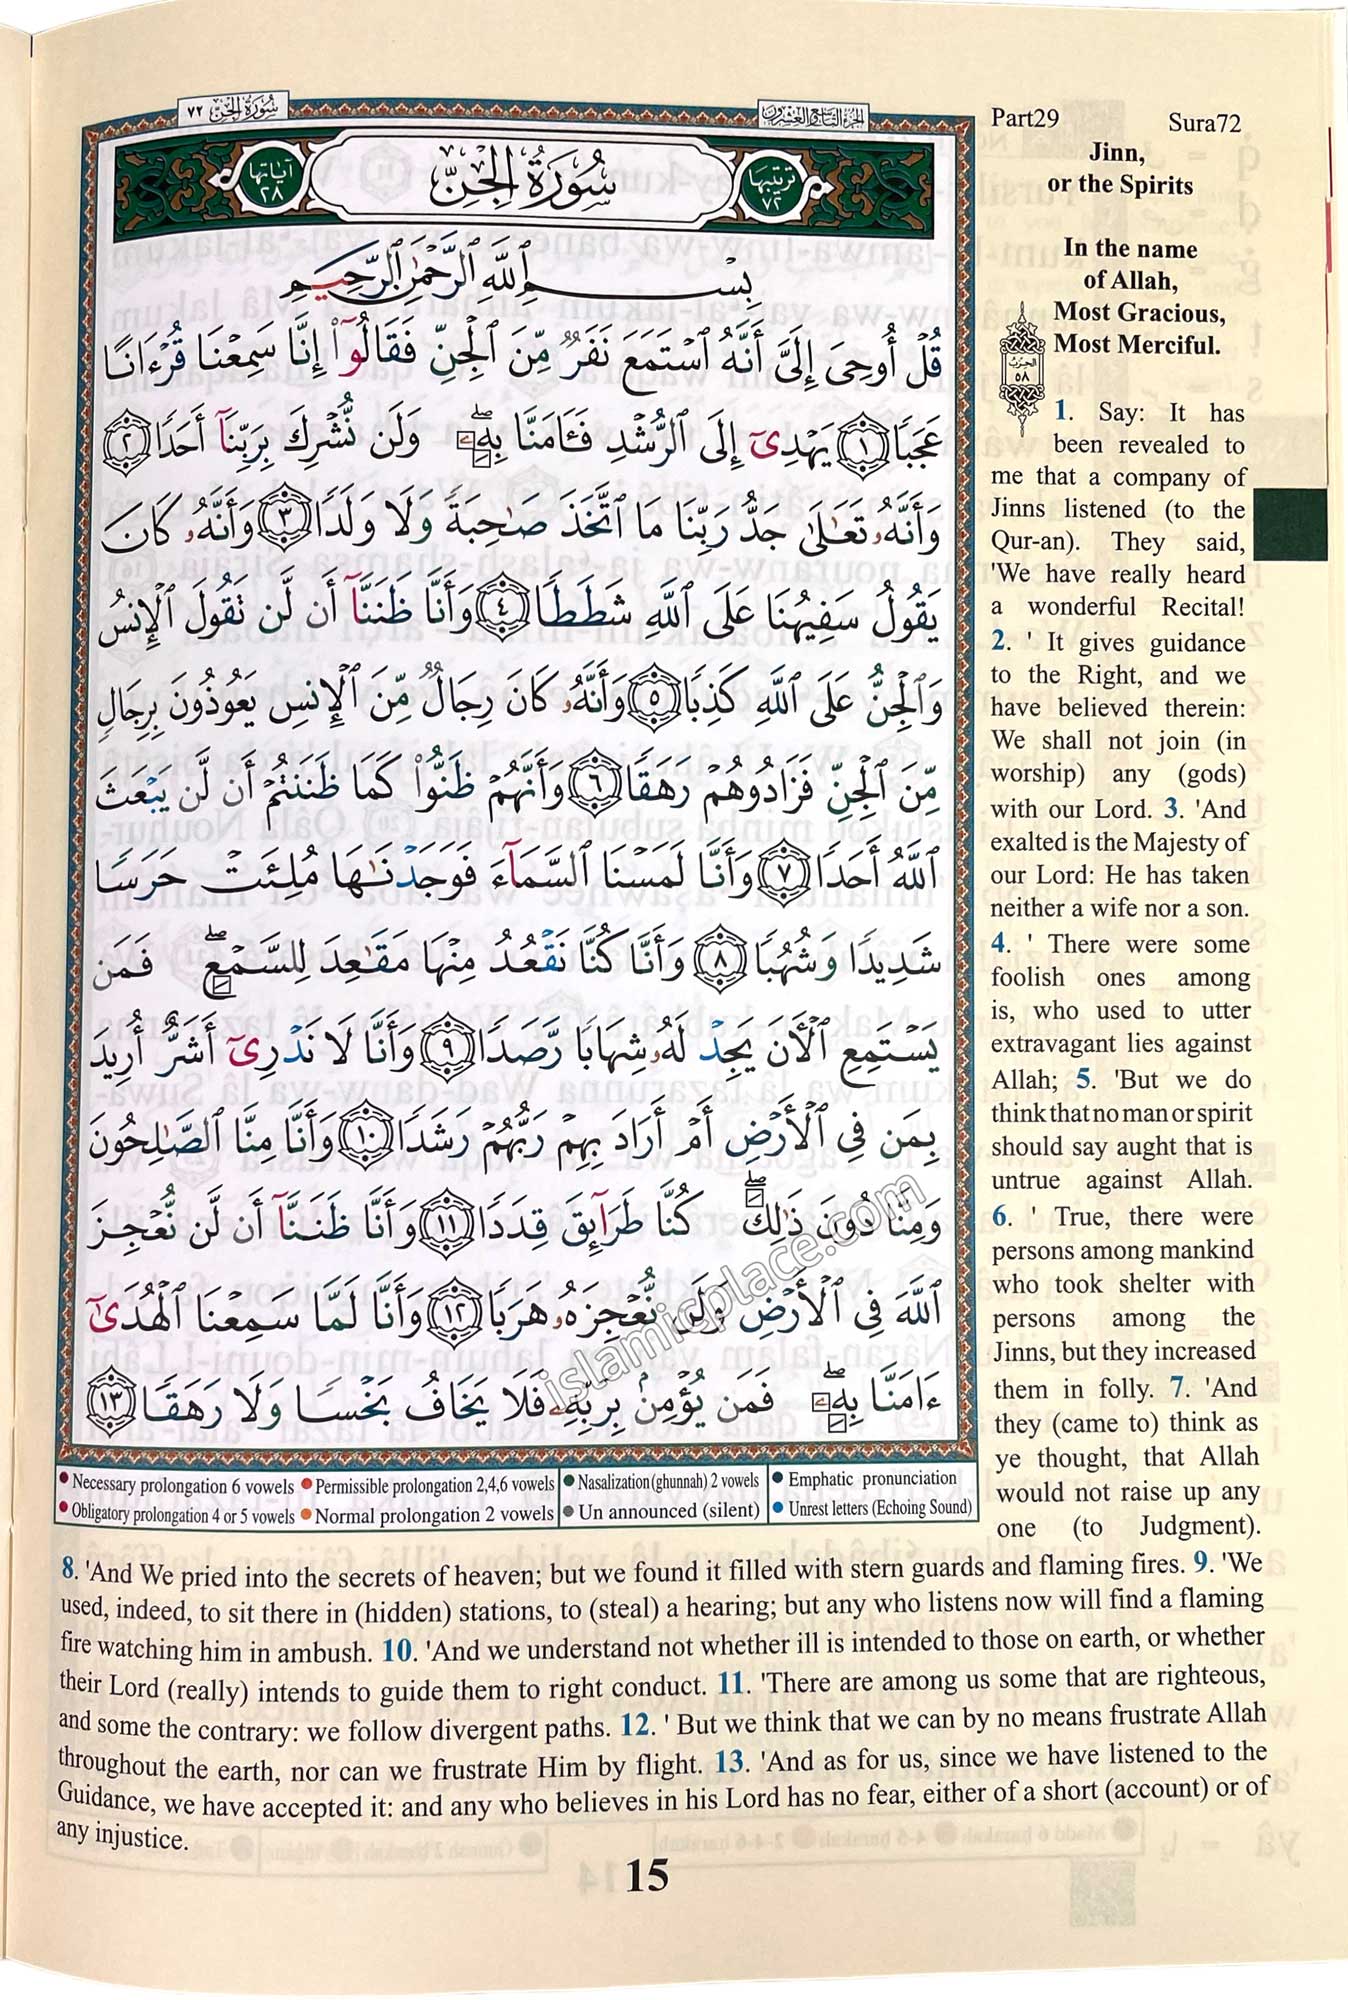 سُورَةُ الجِنّ ٧٢
الجزء التاسع والعشرون
Part29
Sura72
آياتها ٢٨
سُورَةُ الجِنّ
ترتيبها ٧٢
بِسْمِ ٱللَّهِ ٱلرَّحْمَٰنِ ٱلرَّحِيمِ
قُلْ أُوحِىَ إِلَىَّ أَنَّهُ ٱسْتَمَعَ نَفَرٌ مِّنَ ٱلْجِنِّ فَقَالُوٓا۟ إِنَّا سَمِعْنَا قُرْءَانًا
عَجَبًا ١ يَهْدِىٓ إِلَى ٱلرُّشْدِ فَـَٔامَنَّا بِهِۦ ۖ وَلَن نُّشْرِكَ بِرَبِّنَآ أَحَدًا ٢
وَأَنَّهُۥ تَعَٰلَىٰ جَدُّ رَبِّنَا مَا ٱتَّخَذَ صَٰحِبَةً وَلَا وَلَدًا ٣ وَأَنَّهُۥ كَانَ
يَقُولُ سَفِيهُنَا عَلَى ٱللَّهِ شَطَطًا ٤ وَأَنَّا ظَنَنَّآ أَن لَّن تَقُولَ ٱلْإِنسُ
وَٱلْجِنُّ عَلَى ٱللَّهِ كَذِبًا ٥ وَأَنَّهُۥ كَانَ رِجَالٌ مِّنَ ٱلْإِنسِ يَعُوذُونَ بِرِجَالٍ
مِّنَ ٱلْجِنِّ فَزَادُوهُمْ رَهَقًا ٦ وَأَنَّهُمْ ظَنُّوا۟ كَمَا ظَنَنتُمْ أَن لَّن يَبْعَثَ
ٱللَّهُ أَحَدًا ٧ وَأَنَّا لَمَسْنَا ٱلسَّمَآءَ فَوَجَدْنَٰهَا مُلِئَتْ حَرَسًا
شَدِيدًا وَشُهُبًا ٨ وَأَنَّا كُنَّا نَقْعُدُ مِنْهَا مَقَٰعِدَ لِلسَّمْعِ ۖ فَمَن
يَسْتَمِعِ ٱلْـَٔانَ يَجِدْ لَهُۥ شِهَابًا رَّصَدًا ٩ وَأَنَّا لَا نَدْرِىٓ أَشَرٌّ أُرِيدَ
بِمَن فِى ٱلْأَرْضِ أَمْ أَرَادَ بِهِمْ رَبُّهُمْ رَشَدًا ١٠ وَأَنَّا مِنَّا ٱلصَّٰلِحُونَ
وَمِنَّا دُونَ ذَٰلِكَ ۖ كُنَّا طَرَآئِقَ قِدَدًا ١١ وَأَنَّا ظَنَنَّآ أَن لَّن نُّعْجِزَ
ٱللَّهَ فِى ٱلْأَرْضِ وَلَن نُّعْجِزَهُۥ هَرَبًا ١٢ وَأَنَّا لَمَّا سَمِعْنَا ٱلْهُدَىٰٓ
ءَامَنَّا بِهِۦ ۖ فَمَن يُؤْمِنۢ بِرَبِّهِۦ فَلَا يَخَافُ بَخْسًا وَلَا رَهَقًا ١٣
islamicplace.com
Necessary prolongation 6 vowels Permissible prolongation 2,4,6 vowels Nasalization (ghunnah) 2 vowels Emphatic pronunciation
Obligatory prolongation 4 or 5 vowels Normal prolongation 2 vowels Un announced (silent) Unrest letters (Echoing Sound)
Jinn,
or the Spirits
In the name
of Allah,
Most Gracious,
Most Merciful.
الحزب
٥٨
1. Say: It has
been revealed to
me that a company of
Jinns listened (to the
Qur-an). They said,
'We have really heard
a wonderful Recital!
2. ' It gives guidance
to the Right, and we
have believed therein:
We shall not join (in
worship) any (gods)
with our Lord. 3. 'And
exalted is the Majesty of
our Lord: He has taken
neither a wife nor a son.
4. ' There were some
foolish ones among
is, who used to utter
extravagant lies against
Allah; 5. 'But we do
think that no man or spirit
should say aught that is
untrue against Allah.
6. ' True, there were
persons among mankind
who took shelter with
persons among the
Jinns, but they increased
them in folly. 7. 'And
they (came to) think as
ye thought, that Allah
would not raise up any
one (to Judgment).
8. 'And We pried into the secrets of heaven; but we found it filled with stern guards and flaming fires. 9. 'We
used, indeed, to sit there in (hidden) stations, to (steal) a hearing; but any who listens now will find a flaming
fire watching him in ambush. 10. 'And we understand not whether ill is intended to those on earth, or whether
their Lord (really) intends to guide them to right conduct. 11. 'There are among us some that are righteous,
and some the contrary: we follow divergent paths. 12. ' But we think that we can by no means frustrate Allah
throughout the earth, nor can we frustrate Him by flight. 13. 'And as for us, since we have listened to the
Guidance, we have accepted it: and any who believes in his Lord has no fear, either of a short (account) or of
any injustice.
15